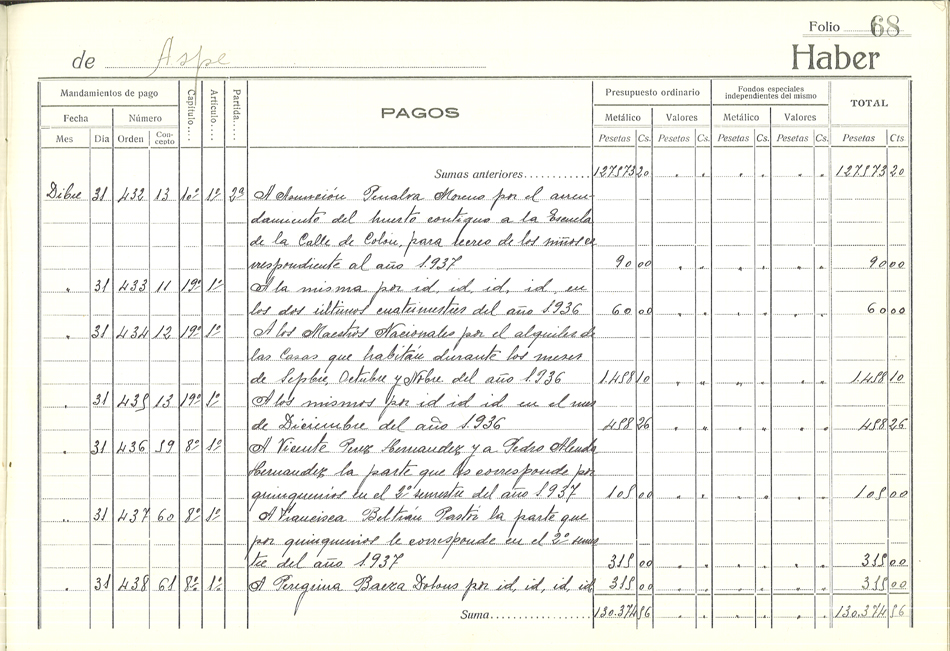 Folio 68
de Aspe Haber
Mandamientos de pago Capítulo.... Artículo.... Partida.... PAGOS Presupuesto ordinario Fondos especiales independientes del mismo TOTAL
Fecha Número Metálico Valores Metálico Valores
Mes Día Orden Concepto Pesetas Cs. Pesetas Cs. Pesetas Cs. Pesetas Cs. Pesetas Cts
Sumas anteriores............ 127573 20 " " " " " " 127573 20
Dibre 31 432 13 10º 1º 2ª A Asunción Penalva Moreno por el arren-
damiento del huerto contiguo a la Escuela
de la Calle de Colón, para recreo de los niños co
rrespondiente al año 1.937 90 00 " " " " " " 90 00
" 31 433 11 19º 1º A la misma por id, id, id, id en
los dos últimos cuatrimestres del año 1.936 60 00 " " " " " " 60 00
" 31 434 12 19º 1º A los Maestros Nacionales por el alquiler de
las Casas que habitán durante los meses
de Sepbre, Octubre y Nobre. del año 1.936 1.458 10 " " " " " " 1.458 10
" 31 435 13 19º 1º A los mismos por id id id en el mes
de Diciembre del año 1.936 458 26 " " " " " " 458 26
" 31 436 59 8º 1º A Vicente Perez Hernandez y a Pedro Alenda
Hernandez la parte que les corresponde por
quinquenios en el 2º semestre del año 1.937 105 00 " " " " " " 105 00
" 31 437 60 8º 1º A Francisca Beltrán Pastor la parte que
por quinquenios le corresponde en el 2º semes
tre del año 1.937 315 00 " " " " " " 315 00
" 31 438 61 8º 1º A Peregrina Baeza por id, id, id, id 315 00 " " " " " " 315 00
Suma................... 130.374 56 " " " " " " 130.374 56